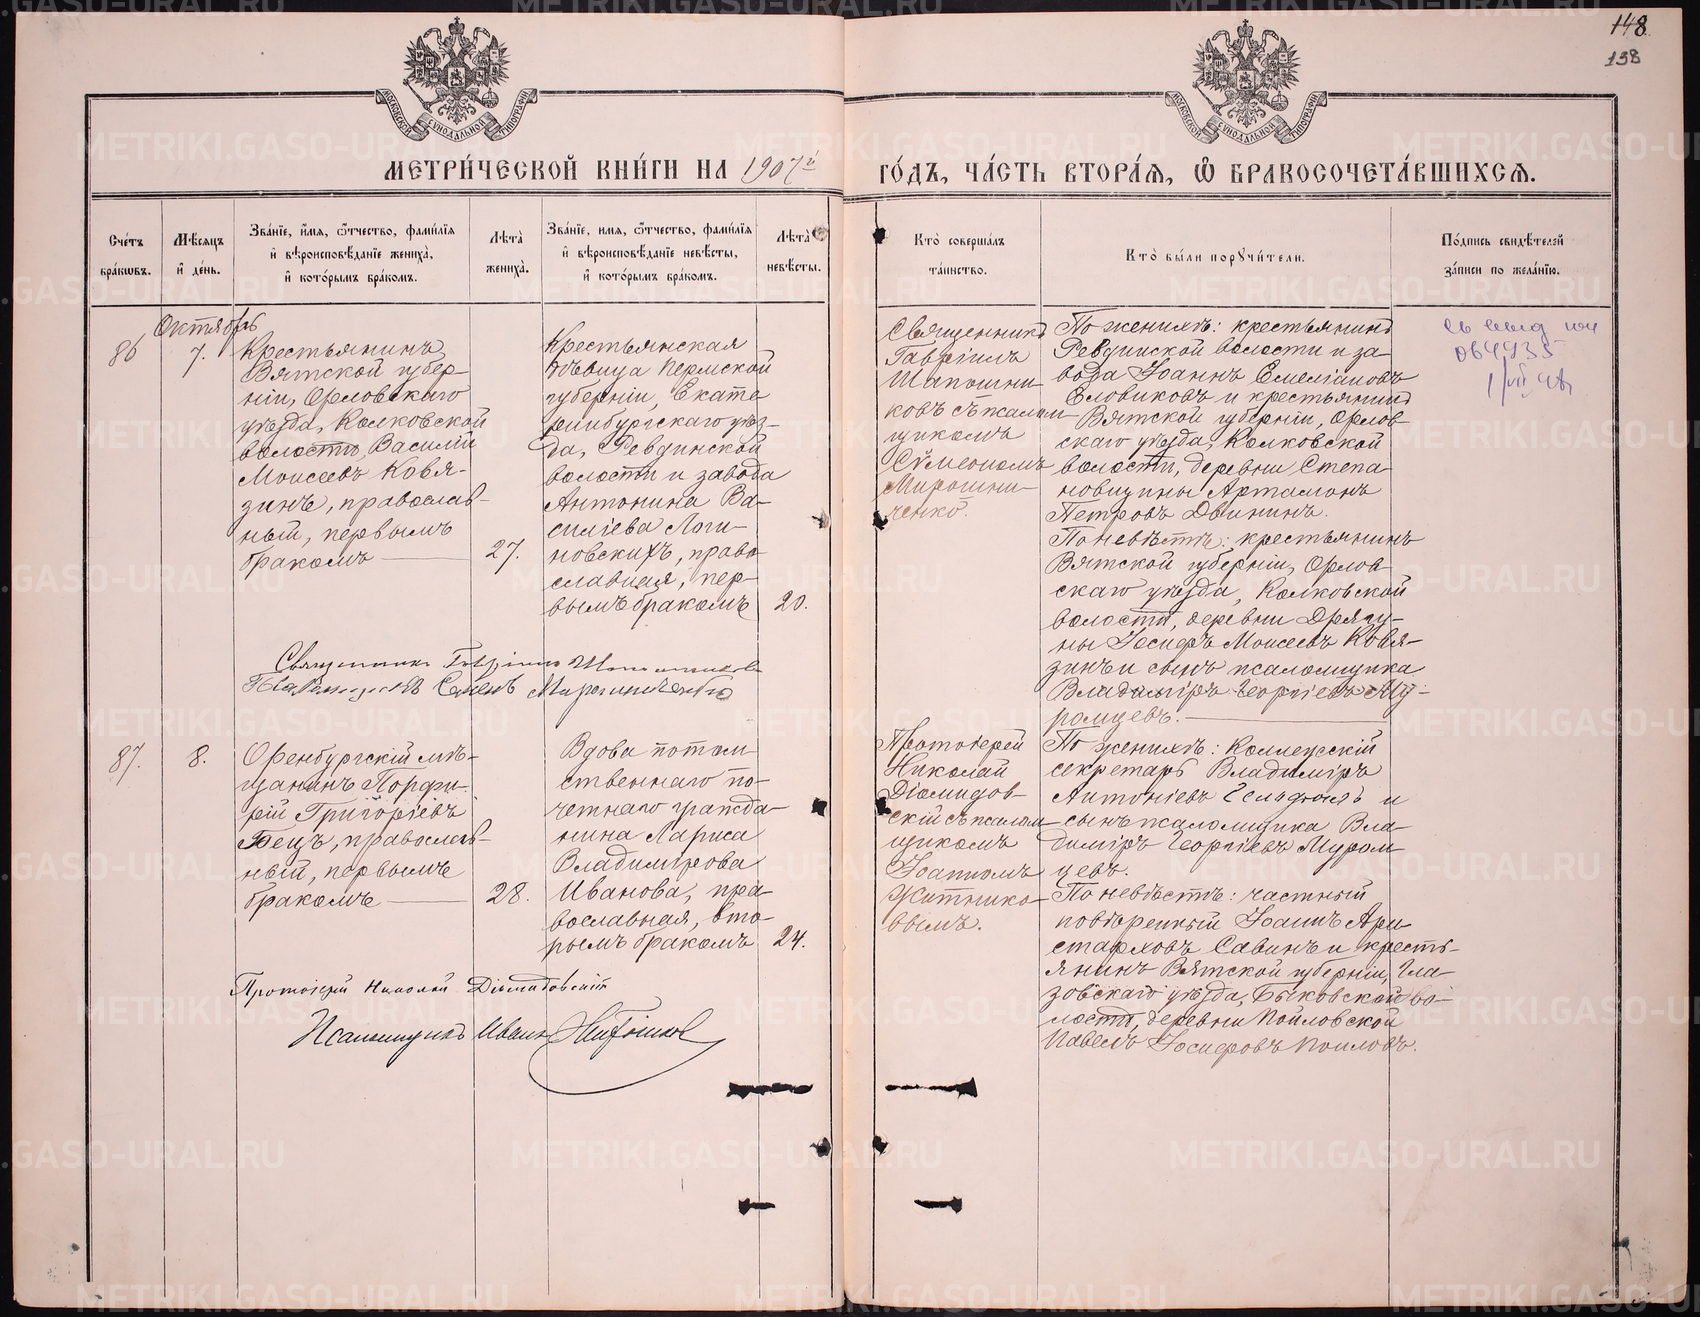 148
138
МОСКОВСКОЙ СѴНОДАЛЬНОЙ ТИПОГРАФІИ
МОСКОВСКОЙ СѴНОДАЛЬНОЙ ТИПОГРАФІИ
МЕТРИ́ЧЕСКОЙ КНИ́ГИ НА 1907й
ГО́ДЪ, ЧА́СТЬ ВТОРА́Ѧ, Ѽ БРАКОСОЧЕТА́ВШИХСѦ.
Сче́тъ бра́кѡвъ.
Мѣ́сяцъ и де́нь.
Зва́нїе, и́мя, ѻ́тчество, фами́лїя и вѣроисповѣ́данїе жениха̀, и кото́рымъ бра́комъ.
Лѣ́та̀ жениха̀.
Зва́нїе, и́мя, ѻ́тчество, фами́лїя и вѣроисповѣ́данїе невѣ́сты, и кото́рымъ бра́комъ.
Лѣ́та̀ невѣ́сты.
Кто̀ соверша́лъ та́инство.
Кто̀ бы́ли порꙋчи́тели.
По́дпись свидѣ́телей за́писи по жела́нїю.
Октябрь
86
7.
Крестьянинъ
Вятской губер-
ніи, Орловскаго
уѣзда, Колковской
волости, Василій
Моисеевъ Ковя-
зинъ, православ-
ный, первымъ
бракомъ
27.
Крестьянская
дѣвица Пермской
губерніи, Екате
ринбургскаго уѣз-
да, Ревдинской
волости и завода
Антонина Ва-
силіева Логи-
новскихъ, право
славная, пер-
вымъ бракомъ
20.
Священникъ
Гавріилъ
Шапошни
ковъ съ псалом
щикомъ
Сѵмеономъ
Мирошни-
ченко.
По женихѣ: крестьянинъ
Ревдинской волости и за-
вода Іоаннъ Емеліановъ
Еловиковъ и крестьянинъ
Вятской губерніи, Орлов-
скаго уѣзда, Колковской
волости, деревни Степа-
новщины Артамонъ
Петровъ Двининъ.
По невѣстѣ: крестьянинъ
Вятской губерніи, Орлов-
скаго уѣзда, Колковской
волости, деревни Дрягу-
ны Іосифъ Моисеевъ Ковя-
зинъ и сынъ псаломщика
Владиміръ Георгіевъ Му-
ромцевъ.
Священникъ Гавріилъ Шапошниковъ
Псаломщикъ Семенъ Мирошниченко
87.
8.
Оренбургскій мѣ-
щанинъ Порфи-
рій Григоріевъ
Бецъ, православ-
ный, первымъ
бракомъ
28.
Вдова потом
ственнаго по-
четнаго гражда-
нина Лариса
Владимірова
Иванова, пра-
вославная, вто-
рымъ бракомъ
24.
Протоіерей
Николай
Діомидов-
скій съ псалом
щикомъ
Іоанномъ
Житнико-
вымъ.
По женихѣ: Коллежскій
секретарь Владиміръ
Антоніевъ и
сынъ псаломщика Вла-
диміръ Георгіевъ Муром
цевъ.
По невѣстѣ: частный
повѣренный Іоаннъ Ари
старховъ Савинъ и кресть-
янинъ Вятской губерніи, Гла
зовскаго уѣзда, Быковской во-
лости, деревни Поиловской
Павелъ Іосифовъ Поиловъ.
Протоіерей Николай Діомидовскій
Псаломщикъ Иванъ Житниковъ
METRIKI.GASO-URAL.RU